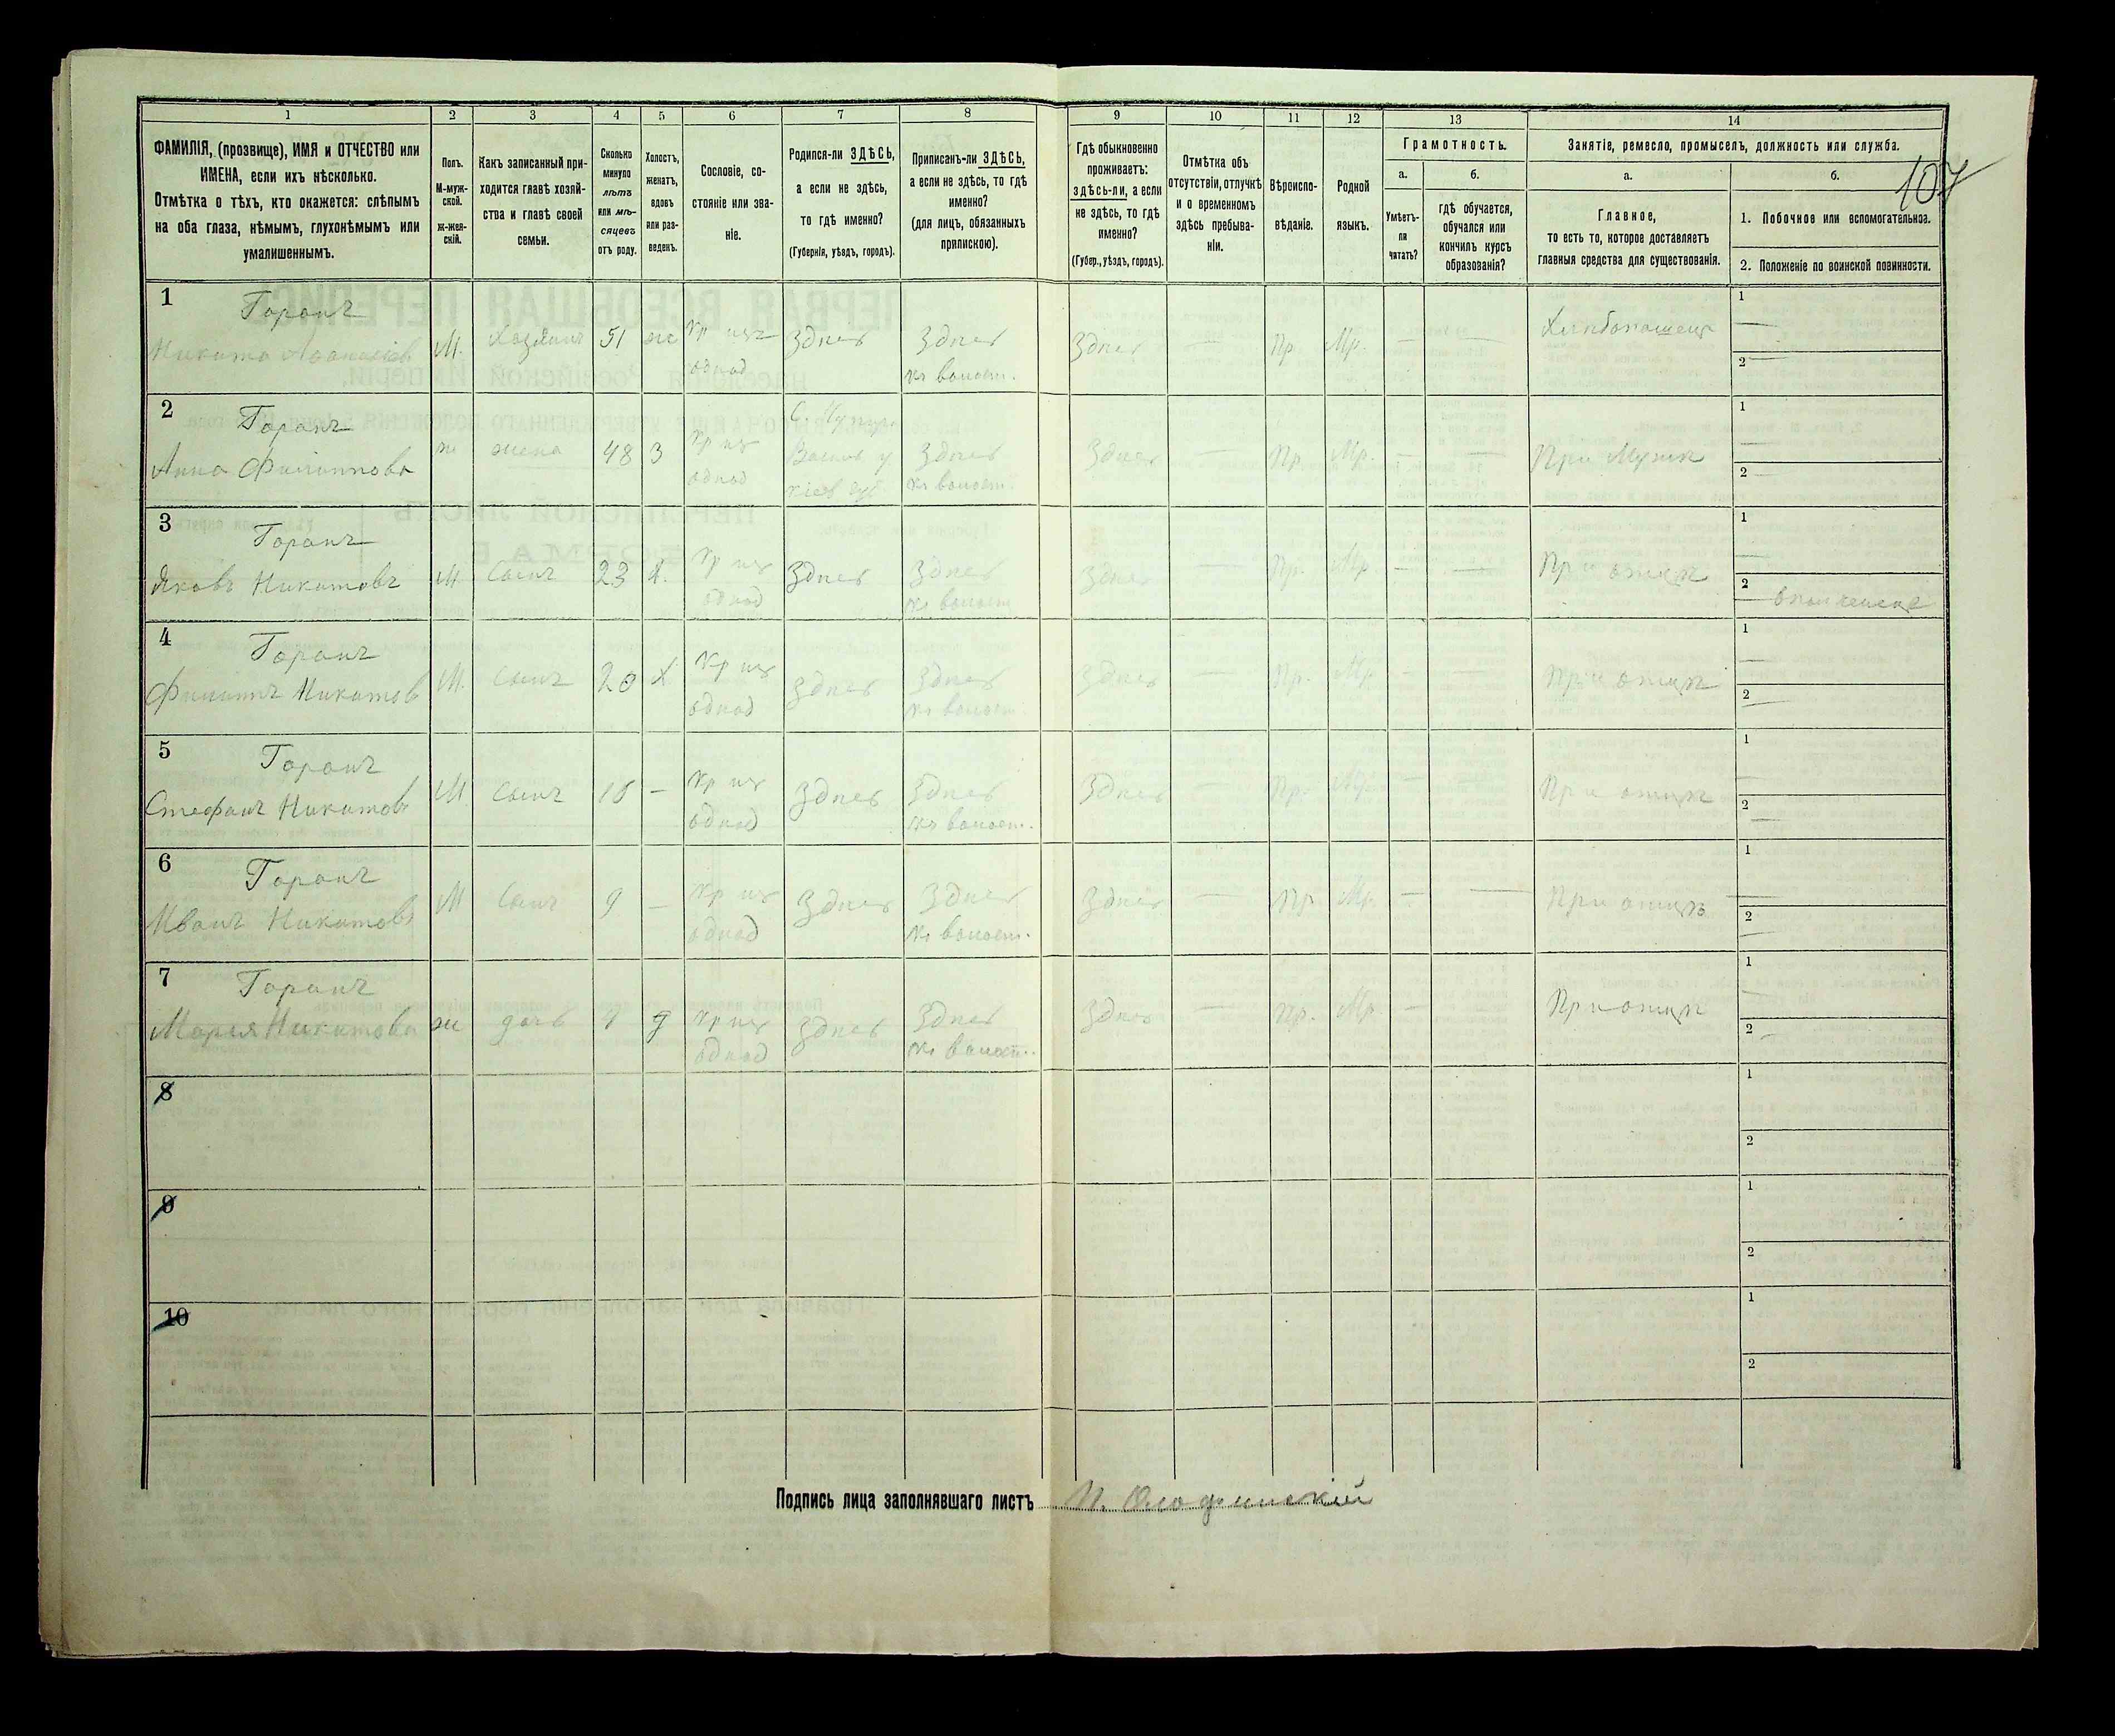 107
1
2
3
4
5
6
7
8
9
10
11
12
13
14
ФАМИЛІЯ, (прозвище), ИМЯ и ОТЧЕСТВО или
ИМЕНА, если ихъ нѣсколько.
Отмѣтка о тѣхъ, кто окажется: слѣпымъ
на оба глаза, нѣмымъ, глухонѣмымъ или
умалишеннымъ.
Полъ.
М-муж-
ской.
ж-жен-
скій.
Какъ записанный при-
ходится главѣ хозяй-
ства и главѣ своей
семьи.
Сколько
минуло
лѣтъ
или мѣ-
сяцевъ
отъ роду.
Холостъ,
женатъ,
вдовъ
или раз-
веденъ.
Сословіе, со-
стояніе или зва-
ніе.
Родился-ли ЗДѢСЬ,
а если не здѣсь,
то гдѣ именно?
(Губернія, уѣздъ, городъ).
Приписанъ-ли ЗДѢСЬ,
а если не здѣсь, то гдѣ
именно?
(для лицъ, обязанныхъ
припискою).
Гдѣ обыкновенно
проживаетъ:
здѣсь-ли, а если
не здѣсь, то гдѣ
именно?
(Губер., уѣздъ, городъ).
Отмѣтка объ
отсутствіи, отлучкѣ
и о временномъ
здѣсь пребыва-
ніи.
Вѣроиспо-
вѣданіе.
Родной
языкъ.
Грамотность.
а.
Умѣетъ-
ли
читать?
б.
гдѣ обучается,
обучался или
кончилъ курсъ
образованія?
Занятіе, ремесло, промыселъ, должность или служба.
а.
Главное,
то есть то, которое доставляетъ
главныя средства для существованія.
б.
1. Побочное или вспомогательное.
2. Положеніе по воинской повинности.
1
Горанъ
Никита
М.
Хозяинъ
51
же
Кр изъ
однод
Здесь
Здесь
къ волост.
Здесь
—
Пр.
Мр.
—
—
Хлебопашец
1
—
2
—
2
Горанъ
Анна Филиппова
ж
жена
48
З
Кр изъ
однод
Васильк у
Кіев губ.
Здесь
къ волост.
Здесь
—
Пр.
Мр.
—
—
При Мужѣ
1
—
2
—
3
Горанъ
Яковъ Никитовъ
М
Сынъ
23
Х.
Кр изъ
однод
Здесь
Здесь
къ волост
Здесь
—
Пр.
Мр.
—
—
При отцѣ
1
—
2
4
Горанъ
Филиппъ Никитов
М.
Сынъ
20
Х
Кр изъ
однод
Здесь
Здесь
къ волост
Здесь
—
Пр.
Мр
—
—
При отцѣ
1
—
2
—
5
Горанъ
Стефанъ Никитовъ
М
Сынъ
—
Кр изъ
однод
Здесь
Здесь
къ волост.
Здесь
—
Пр.
Мр.
—
—
При отцѣ
1
—
2
—
6
Горанъ
Иванъ Никитовъ
М
Сынъ
9
—
Кр изъ
однод
Здесь
Здесь
къ волост.
Здесь
—
Пр
Мр.
—
—
При отцѣ
1
—
2
—
7
Горанъ
Мария Никитова
ж
дочь
Кр изъ
однод
Здесь
Здесь
къ волост.
Здесь
—
Пр.
Мр
—
При отцѣ
1
2
—
8
1
2
9
1
2
10
1
2
Подпись лица заполнявшаго листъ